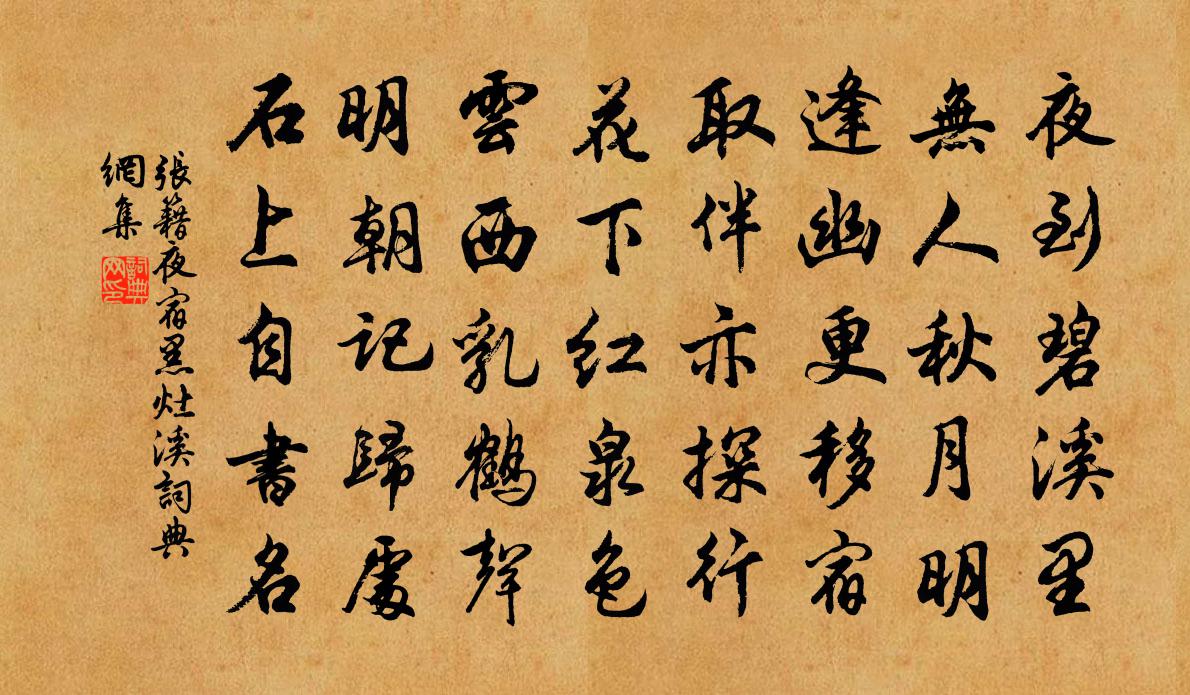 夜到碧溪里
無人秋月明
逢幽更移宿
取伴亦探行
花下紅泉色
雲西乳鶴聲
明朝記歸處
石上自書名
張籍夜宿黑灶溪詞典
網集
詞典
网印